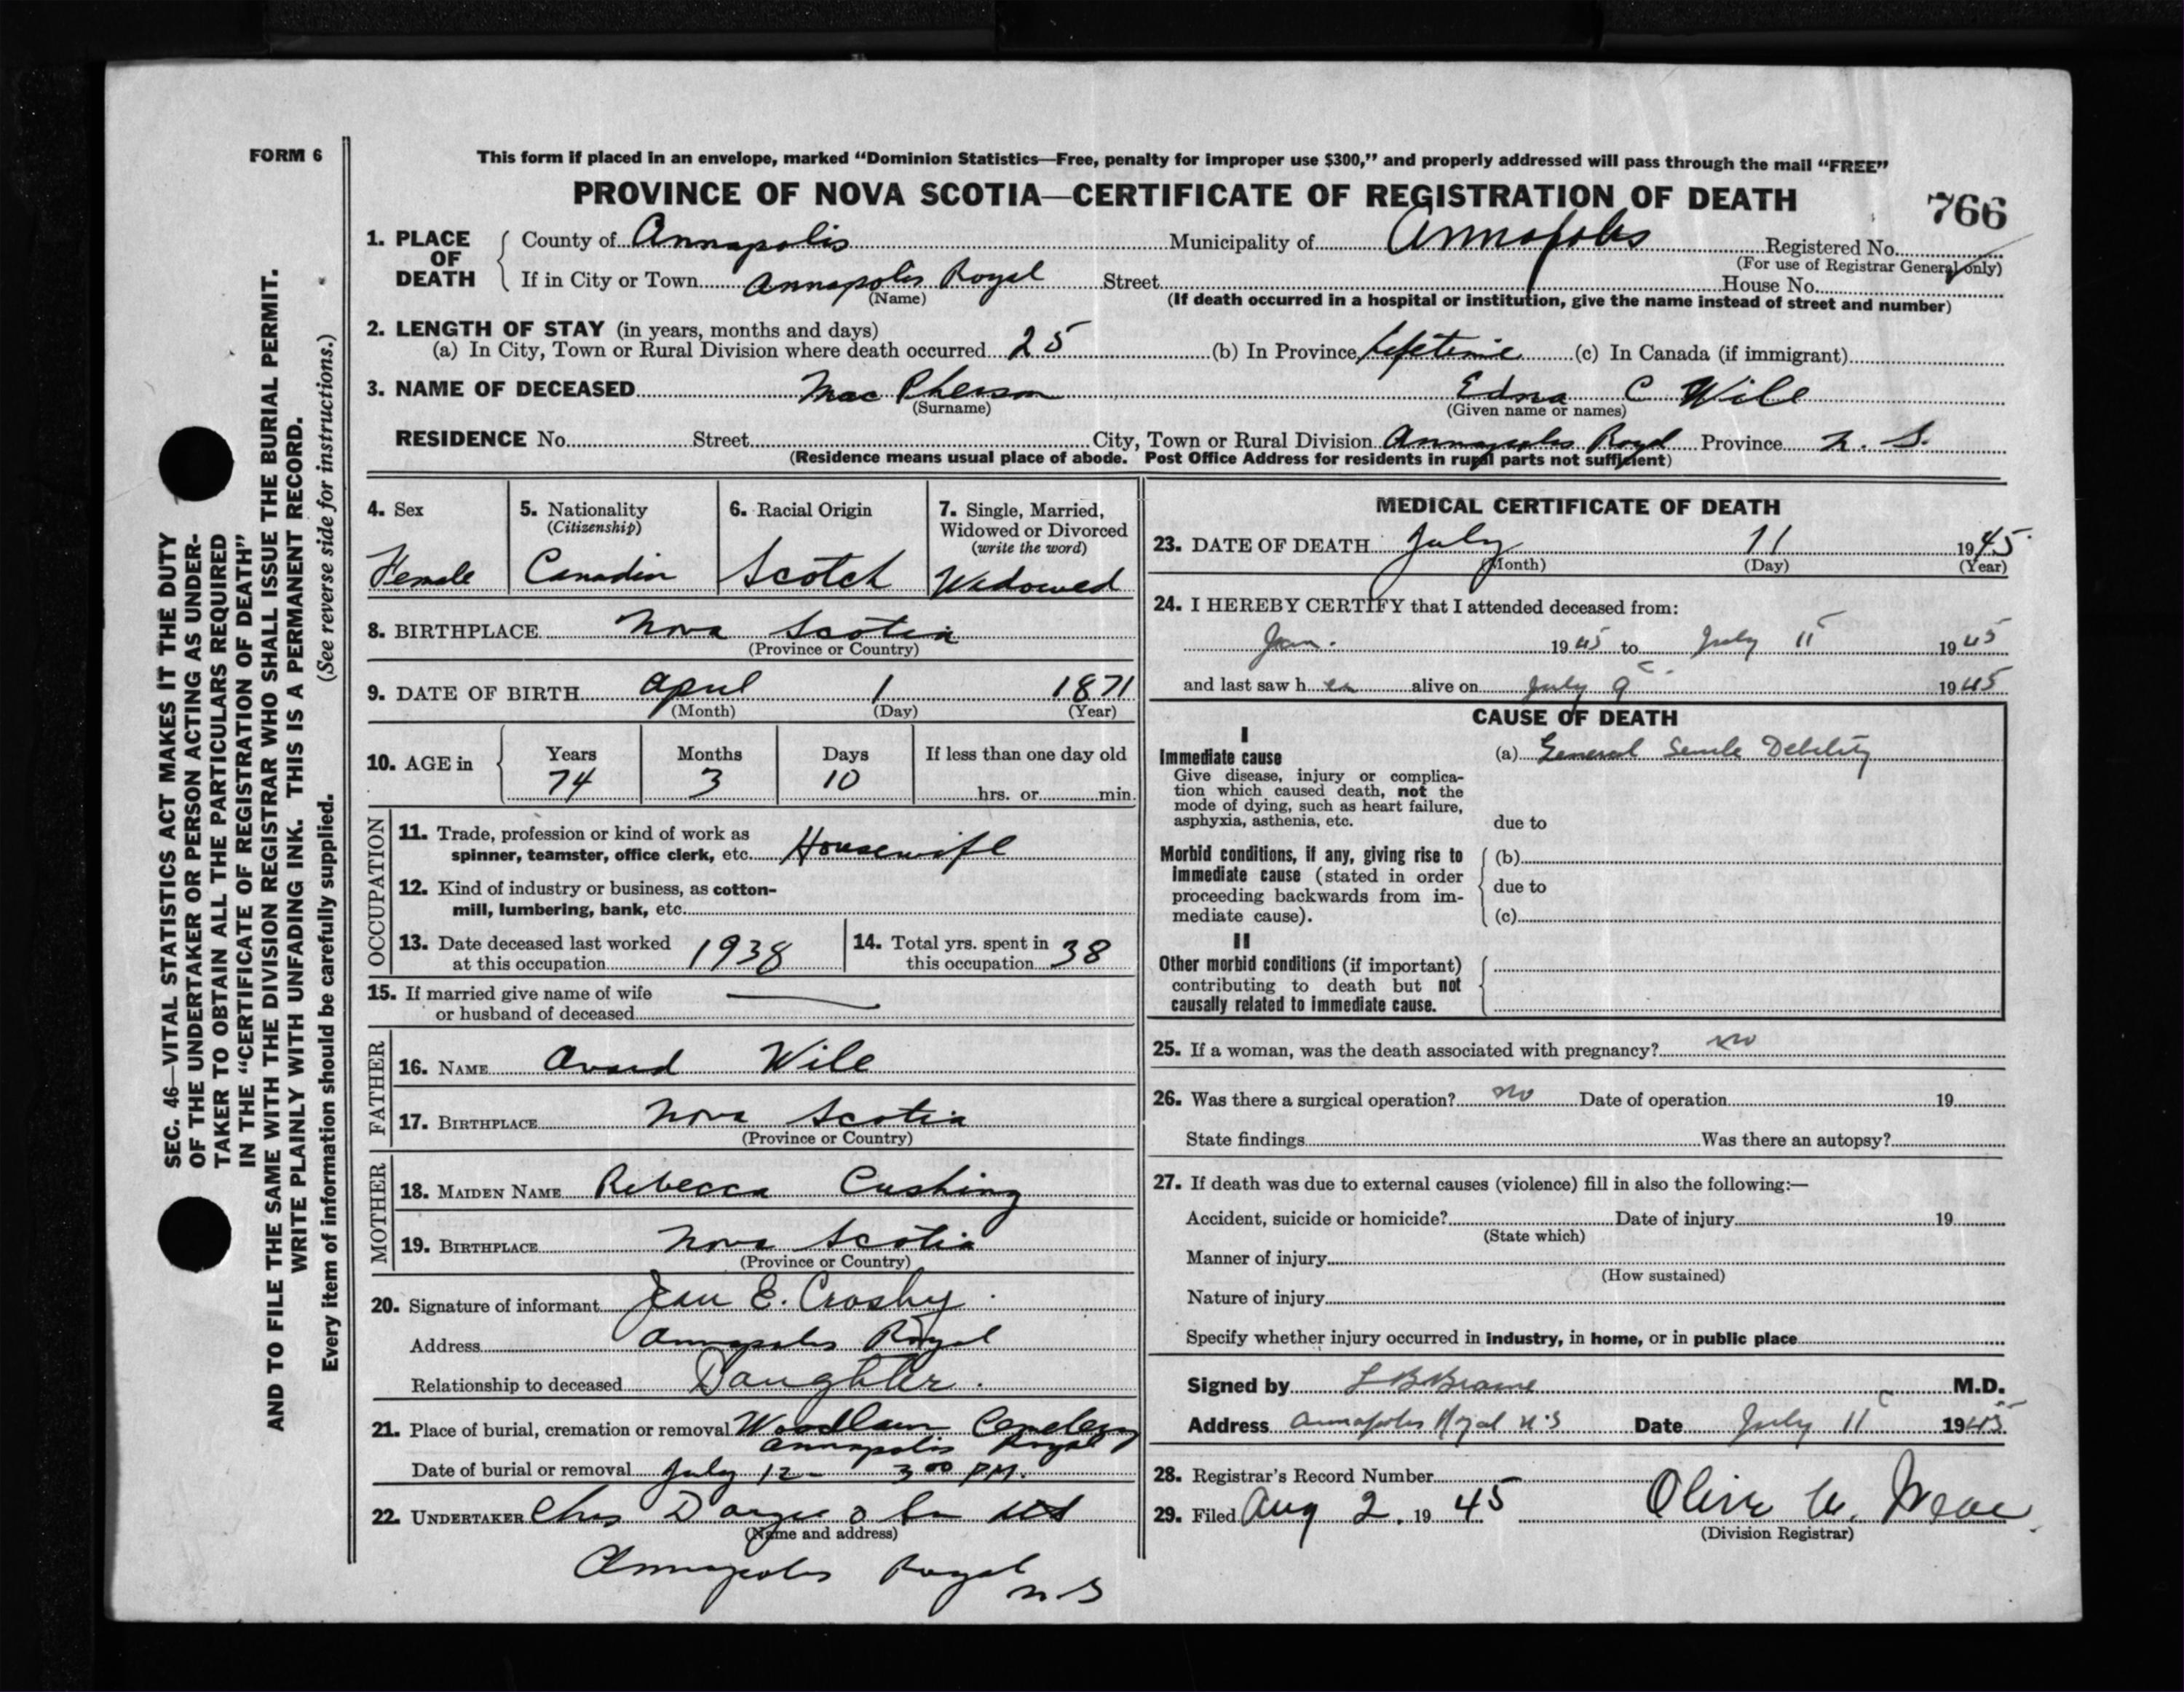 FORM 6
This form if placed in an envelope, marked “Dominion Statistics—Free, penalty for improper use $300,” and properly addressed will pass through the mail “FREE”
PROVINCE OF NOVA SCOTIA—CERTIFICATE OF REGISTRATION OF DEATH
766
1. PLACE OF DEATH County of Annapolis Municipality of Annapolis Registered No.
(For use of Registrar General only)
If in City or Town Annapolis Royal Street House No.
(Name) (If death occurred in a hospital or institution, give the name instead of street and number)
2. LENGTH OF STAY (in years, months and days)
(a) In City, Town or Rural Division where death occurred 25 (b) In Province Lifetime (c) In Canada (if immigrant)
3. NAME OF DECEASED Mac Pherson Edna C Wile
(Surname) (Given name or names)
RESIDENCE No. Street City, Town or Rural Division Annapolis Royal Province N. S.
(Residence means usual place of abode. Post Office Address for residents in rural parts not sufficient)
4. Sex
Female
5. Nationality
(Citizenship)
Canadin
6. Racial Origin
Scotch
7. Single, Married,
Widowed or Divorced
(write the word)
Widowed
8. BIRTHPLACE Nova Scotia
(Province or Country)
9. DATE OF BIRTH April 1 1871
(Month) (Day) (Year)
10. AGE in Years Months Days If less than one day old
74 3 10 hrs. or min.
OCCUPATION
11. Trade, profession or kind of work as
spinner, teamster, office clerk, etc. Housewife
12. Kind of industry or business, as cotton-
mill, lumbering, bank, etc.
13. Date deceased last worked
at this occupation 1938
14. Total yrs. spent in
this occupation 38
15. If married give name of wife
or husband of deceased —
FATHER
16. NAME Avard Wile
17. BIRTHPLACE Nova Scotia
(Province or Country)
MOTHER
18. MAIDEN NAME Rebecca Cushing
19. BIRTHPLACE Nova Scotia
(Province or Country)
20. Signature of informant Jean E. Crosby
Address Annapolis Royal
Relationship to deceased Daughter.
21. Place of burial, cremation or removal Woodlawn Cemetery
Annapolis Royal
Date of burial or removal July 12 3 00 PM.
22. UNDERTAKER Chas
(Name and address)
Annapolis Royal
N.S
MEDICAL CERTIFICATE OF DEATH
23. DATE OF DEATH July 11 1945
(Month) (Day) (Year)
24. I HEREBY CERTIFY that I attended deceased from:
Jan. 1945 to July 11 1945
and last saw her alive on July 9 1945
CAUSE OF DEATH
I
Immediate cause
Give disease, injury or complica-
tion which caused death, not the
mode of dying, such as heart failure,
asphyxia, asthenia, etc.
(a) General Senile Debility
due to
Morbid conditions, if any, giving rise to
immediate cause (stated in order
proceeding backwards from im-
mediate cause).
(b)
due to
(c)
II
Other morbid conditions (if important)
contributing to death but not
causally related to immediate cause.
25. If a woman, was the death associated with pregnancy? no
26. Was there a surgical operation? no Date of operation 19
State findings Was there an autopsy?
27. If death was due to external causes (violence) fill in also the following:—
Accident, suicide or homicide? Date of injury 19
(State which)
Manner of injury
(How sustained)
Nature of injury
Specify whether injury occurred in industry, in home, or in public place
Signed by L B Braine M.D.
Address Annapolis Royal N.S Date July 11 1945
28. Registrar's Record Number
29. Filed Aug 2. 1945 Olive
(Division Registrar)
SEC. 46—VITAL STATISTICS ACT MAKES IT THE DUTY
OF THE UNDERTAKER OR PERSON ACTING AS UNDER-
TAKER TO OBTAIN ALL THE PARTICULARS REQUIRED
IN THE “CERTIFICATE OF REGISTRATION OF DEATH”
AND TO FILE THE SAME WITH THE DIVISION REGISTRAR WHO SHALL ISSUE THE BURIAL PERMIT.
WRITE PLAINLY WITH UNFADING INK. THIS IS A PERMANENT RECORD.
Every item of information should be carefully supplied. (See reverse side for instructions.)